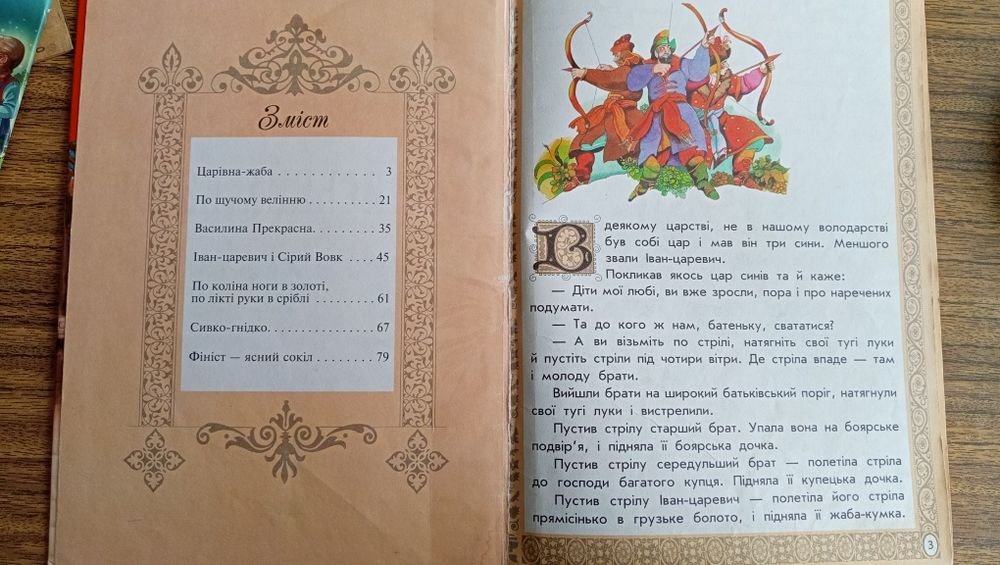 Зміст
Царівна-жаба . . . . . . . . . . . . . 3
По щучому велінню . . . . . . . . . 21
Василина Прекрасна. . . . . . . . . 35
Іван-царевич і Сірий Вовк . . . . 45
По коліна ноги в золоті,
по лікті руки в сріблі . . . . . . . . 61
Сивко-гнідко. . . . . . . . . . . . . . 67
Фініст — ясний сокіл . . . . . . . . 79
В деякому царстві, не в нашому володарстві
був собі цар і мав він три сини. Меншого
звали Іван-царевич.
Покликав якось цар синів та й каже:
— Діти мої любі, ви вже зросли, пора і про наречених
подумати.
— Та до кого ж нам, батеньку, свататися?
— А ви візьміть по стрілі, натягніть свої тугі луки
й пустіть стріли під чотири вітри. Де стріла впаде — там
і молоду брати.
Вийшли брати на широкий батьківський поріг, натягнули
свої тугі луки і вистрелили.
Пустив стрілу старший брат. Упала вона на боярське
подвір’я, і підняла її боярська дочка.
Пустив стрілу середульший брат — полетіла стріла
до господи багатого купця. Підняла її купецька дочка.
Пустив стрілу Іван-царевич — полетіла його стріла
прямісінько в грузьке болото, і підняла її жаба-кумка.
3